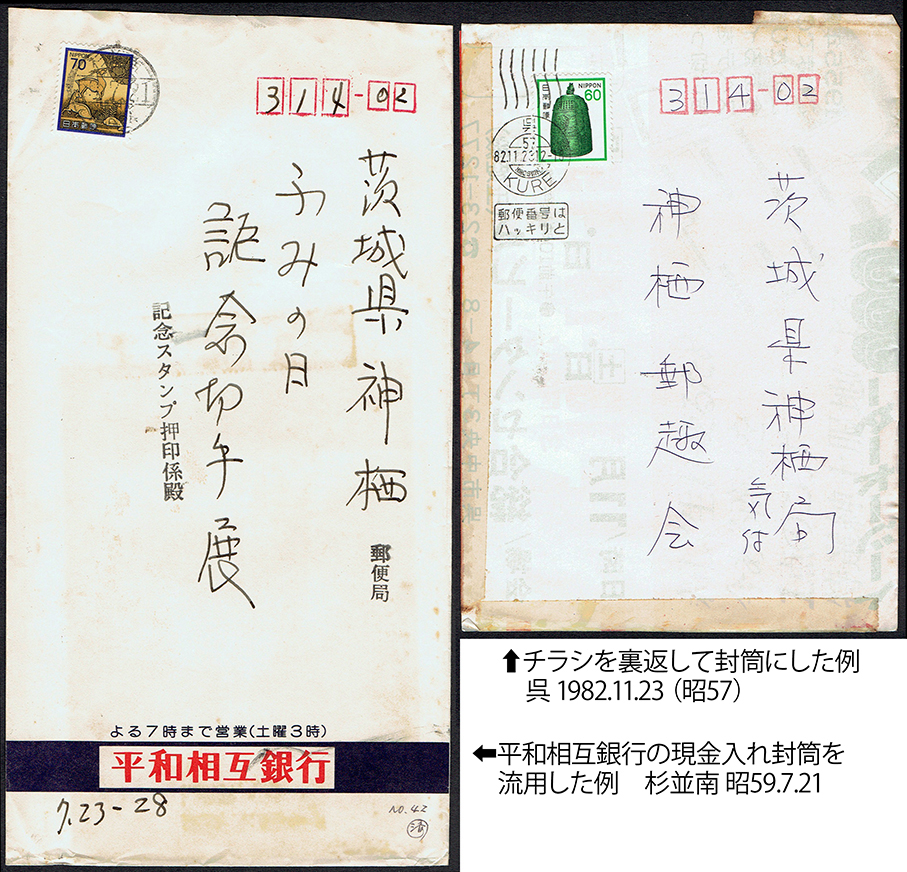 NIPPON
70
日本郵便
21
314-02
茨城県神栖
郵便局
ふみの日
記念切手展
記念スタンプ押印係殿
よる7時まで営業(土曜3時)
平和相互銀行
7.23-28
NO.42
済
NIPPON
60
日本郵便
呉
57
82.11.23 12-18
KURE
郵便番号は
ハッキリと
314-02
茨城県神栖局
気付
神栖郵趣会
⬆チラシを裏返して封筒にした例
呉 1982.11.23(昭57)
⬅平和相互銀行の現金入れ封筒を
流用した例 杉並南 昭59.7.21